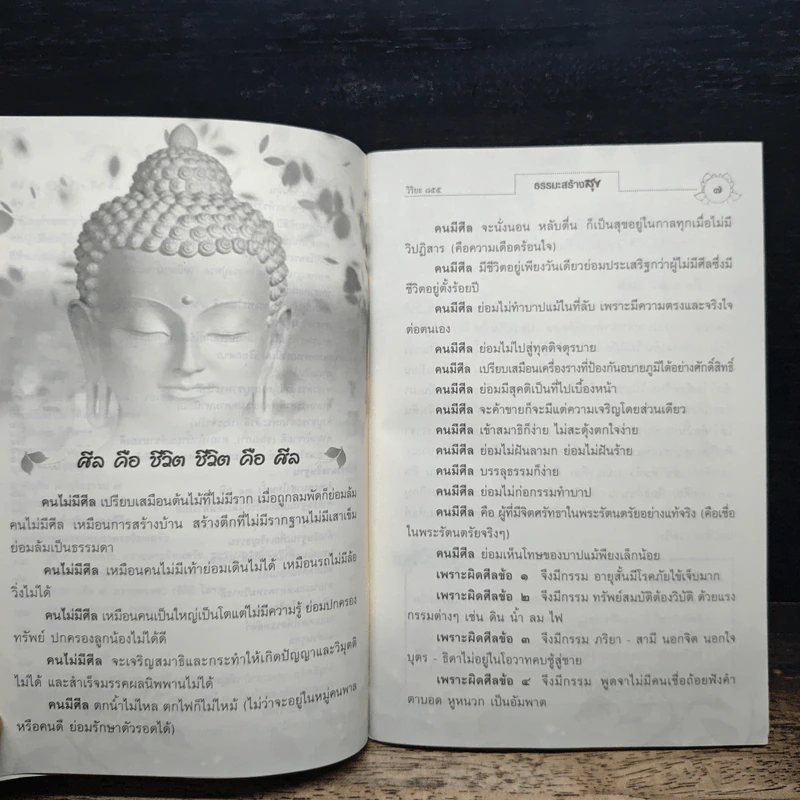 ศีล คือ ชีวิต ชีวิต คือ ศีล
คนไม่มีศีล เปรียบเสมือนต้นไม้ที่ไม่มีราก เมื่อถูกลมพัดก็ย่อมล้ม
คนไม่มีศีล เหมือนการสร้างบ้าน สร้างตึกที่ไม่มีรากฐานไม่มีเสาเข็ม
ย่อมล้มเป็นธรรมดา
คนไม่มีศีล เหมือนคนไม่มีเท้าย่อมเดินไม่ได้ เหมือนรถไม่มีล้อ
วิ่งไม่ได้
คนไม่มีศีล เหมือนคนเป็นใหญ่เป็นโตแต่ไม่มีความรู้ ย่อมปกครอง
ทรัพย์ ปกครองลูกน้องไม่ได้ดี
คนไม่มีศีล จะเจริญสมาธิและกระทำให้เกิดปัญญาและวิมุตติ
ไม่ได้ และสำเร็จมรรคผลนิพพานไม่ได้
คนมีศีล ตกน้ำไม่ไหล ตกไฟก็ไม่ไหม้ (ไม่ว่าจะอยู่ในหมู่คนพาล
หรือคนดี ย่อมรักษาตัวรอดได้)
วิริยะ ๘๕๕
ธรรมะสร้างสุข
๗
คนมีศีล จะนั่งนอน หลับตื่น ก็เป็นสุขอยู่ในกาลทุกเมื่อไม่มี
วิปฏิสาร (คือความเดือดร้อนใจ)
คนมีศีล มีชีวิตอยู่เพียงวันเดียวย่อมประเสริฐกว่าผู้ไม่มีศีลซึ่งมี
ชีวิตอยู่ตั้งร้อยปี
คนมีศีล ย่อมไม่ทำบาปแม้ในที่ลับ เพราะมีความตรงและจริงใจ
ต่อตนเอง
คนมีศีล ย่อมไม่ไปสู่ทุคติจตุรบาย
คนมีศีล เปรียบเสมือนเครื่องรางที่ป้องกันอบายภูมิได้อย่างศักดิ์สิทธิ์
คนมีศีล ย่อมมีสุคติเป็นที่ไปเบื้องหน้า
คนมีศีล จะค้าขายก็จะมีแต่ความเจริญโดยส่วนเดียว
คนมีศีล เข้าสมาธิก็ง่าย ไม่สะดุ้งตกใจง่าย
คนมีศีล ย่อมไม่ฝันลามก ย่อมไม่ฝันร้าย
คนมีศีล บรรลุธรรมก็ง่าย
คนมีศีล ย่อมไม่ก่อกรรมทำบาป
คนมีศีล คือ ผู้ที่มีจิตศรัทธาในพระรัตนตรัยอย่างแท้จริง (คือเชื่อ
ในพระรัตนตรัยจริงๆ)
คนมีศีล ย่อมเห็นโทษของบาปแม้เพียงเล็กน้อย
เพราะผิดศีลข้อ ๑ จึงมีกรรม อายุสั้นมีโรคภัยไข้เจ็บมาก
เพราะผิดศีลข้อ ๒ จึงมีกรรม ทรัพย์สมบัติต้องวิบัติ ด้วยแรง
กรรมต่างๆ เช่น ดิน น้ำ ลม ไฟ
เพราะผิดศีลข้อ ๓ จึงมีกรรม ภริยา - สามี นอกจิต นอกใจ
บุตร - ธิดาไม่อยู่ในโอวาทคบชู้สู่ชาย
เพราะผิดศีลข้อ ๔ จึงมีกรรม พูดจาไม่มีคนเชื่อถ้อยฟังคำ
ตาบอด หูหนวก เป็นอัมพาต